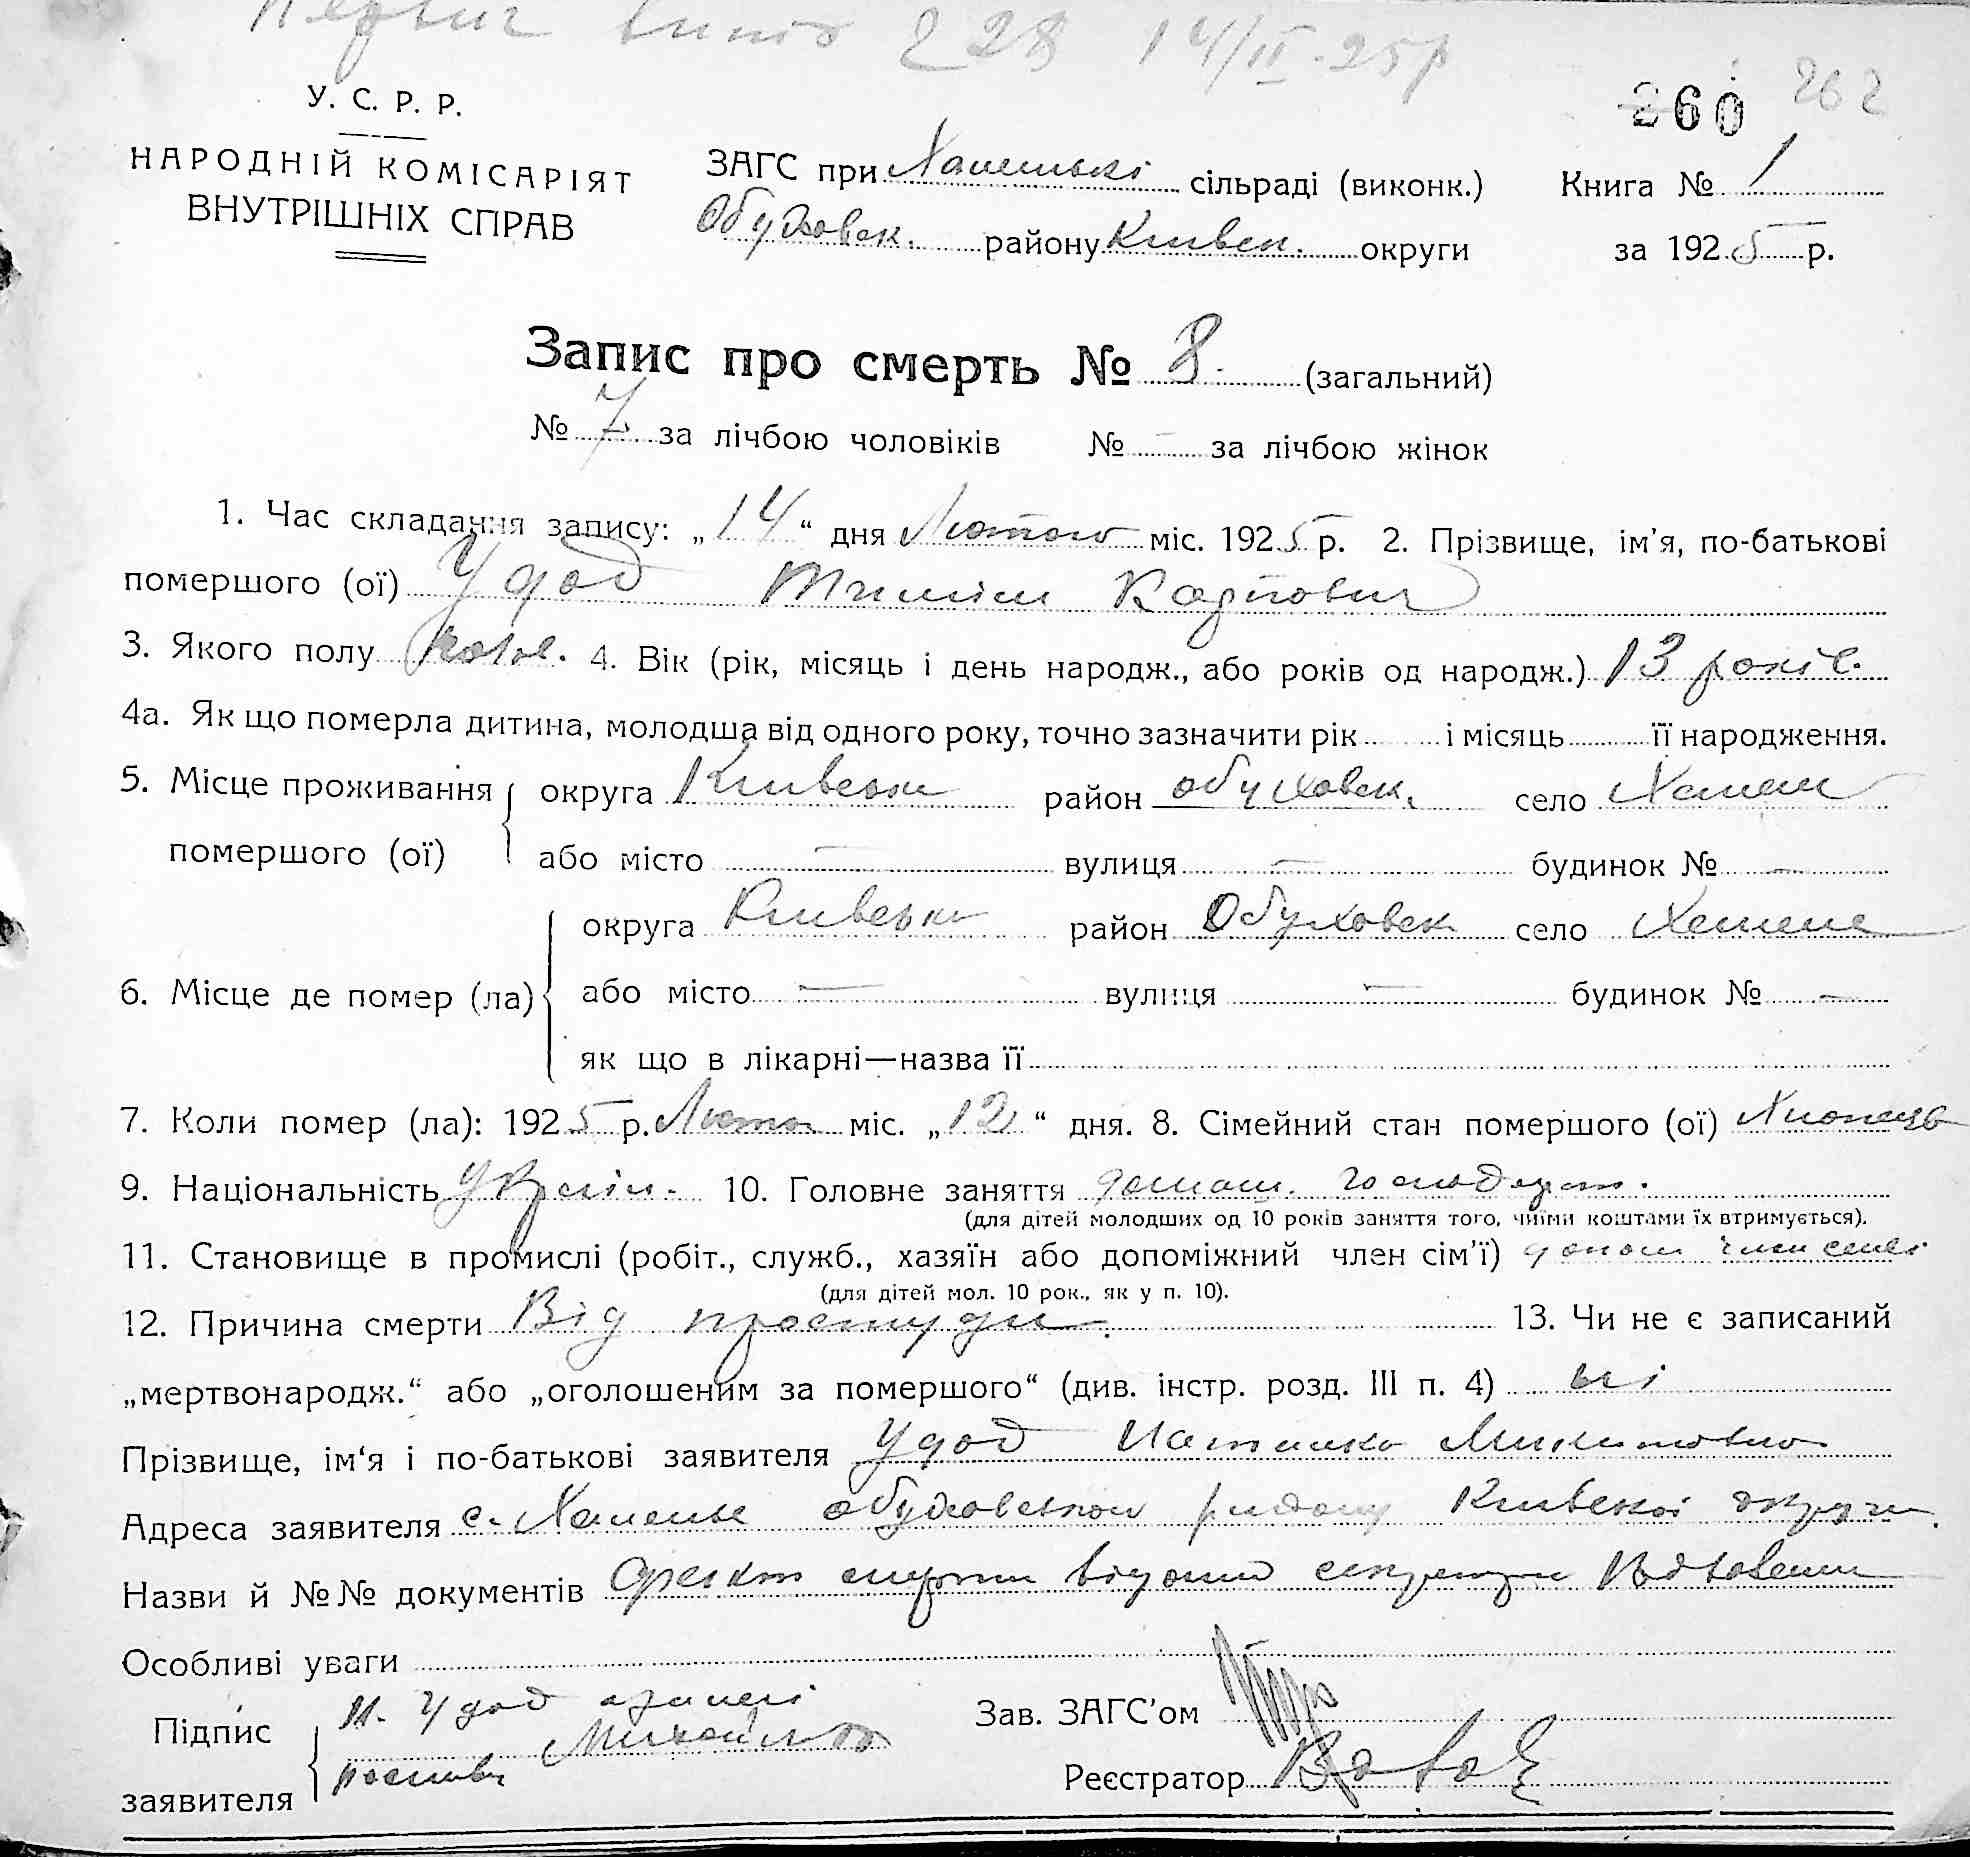 228 14/II-25р
У. С. Р. Р.
260 262
НАРОДНІЙ КОМІСАРІЯТ
ВНУТРІШНІХ СПРАВ
ЗАГС при сільраді (виконк.) Книга № 1
Обуховськ. району Київськ. округи за 1925 р.
Запис про смерть № 8. (загальний)
№ 7 за лічбою чоловіків № — за лічбою жінок
1. Час складання запису: „14“ дня Лютого міс. 1925 р. 2. Прізвище, ім’я, по-батькові
помершого (ої) Удод Карпович
3. Якого полу чолов. 4. Вік (рік, місяць і день народж., або років од народж.) 13 років.
4а. Як що померла дитина, молодша від одного року, точно зазначити рік і місяць її народження.
5. Місце проживання помершого (ої) округа Київськ район обуховськ. село
або місто — вулиця — будинок № —
6. Місце де помер (ла) округа Київськ район Обуховськ село
або місто — вулиця — будинок № —
як що в лікарні—назва її
7. Коли помер (ла): 1925 р. міс. „12“ дня. 8. Сімейний стан помершого (ої) Хлопець
9. Національність Україн. 10. Головне заняття домаш.
(для дітей молодших од 10 років заняття того, чиїми коштами їх втримується).
11. Становище в промислі (робіт., служб., хазяїн або допоміжний член сім’ї) допом член семі
(для дітей мол. 10 рок., як у п. 10).
12. Причина смерти Від простуди. 13. Чи не є записаний
„мертвонародж.“ або „оголошеним за помершого“ (див. інстр. розд. III п. 4) ні
Прізвище, ім‘я і по-батькові заявителя Удод
Адреса заявителя с. обуховського району Київської округи.
Назви й №№ документів факт смерти відомий
Особливі уваги
Підпис заявителя Удод
Зав. ЗАГС’ом
Реєстратор